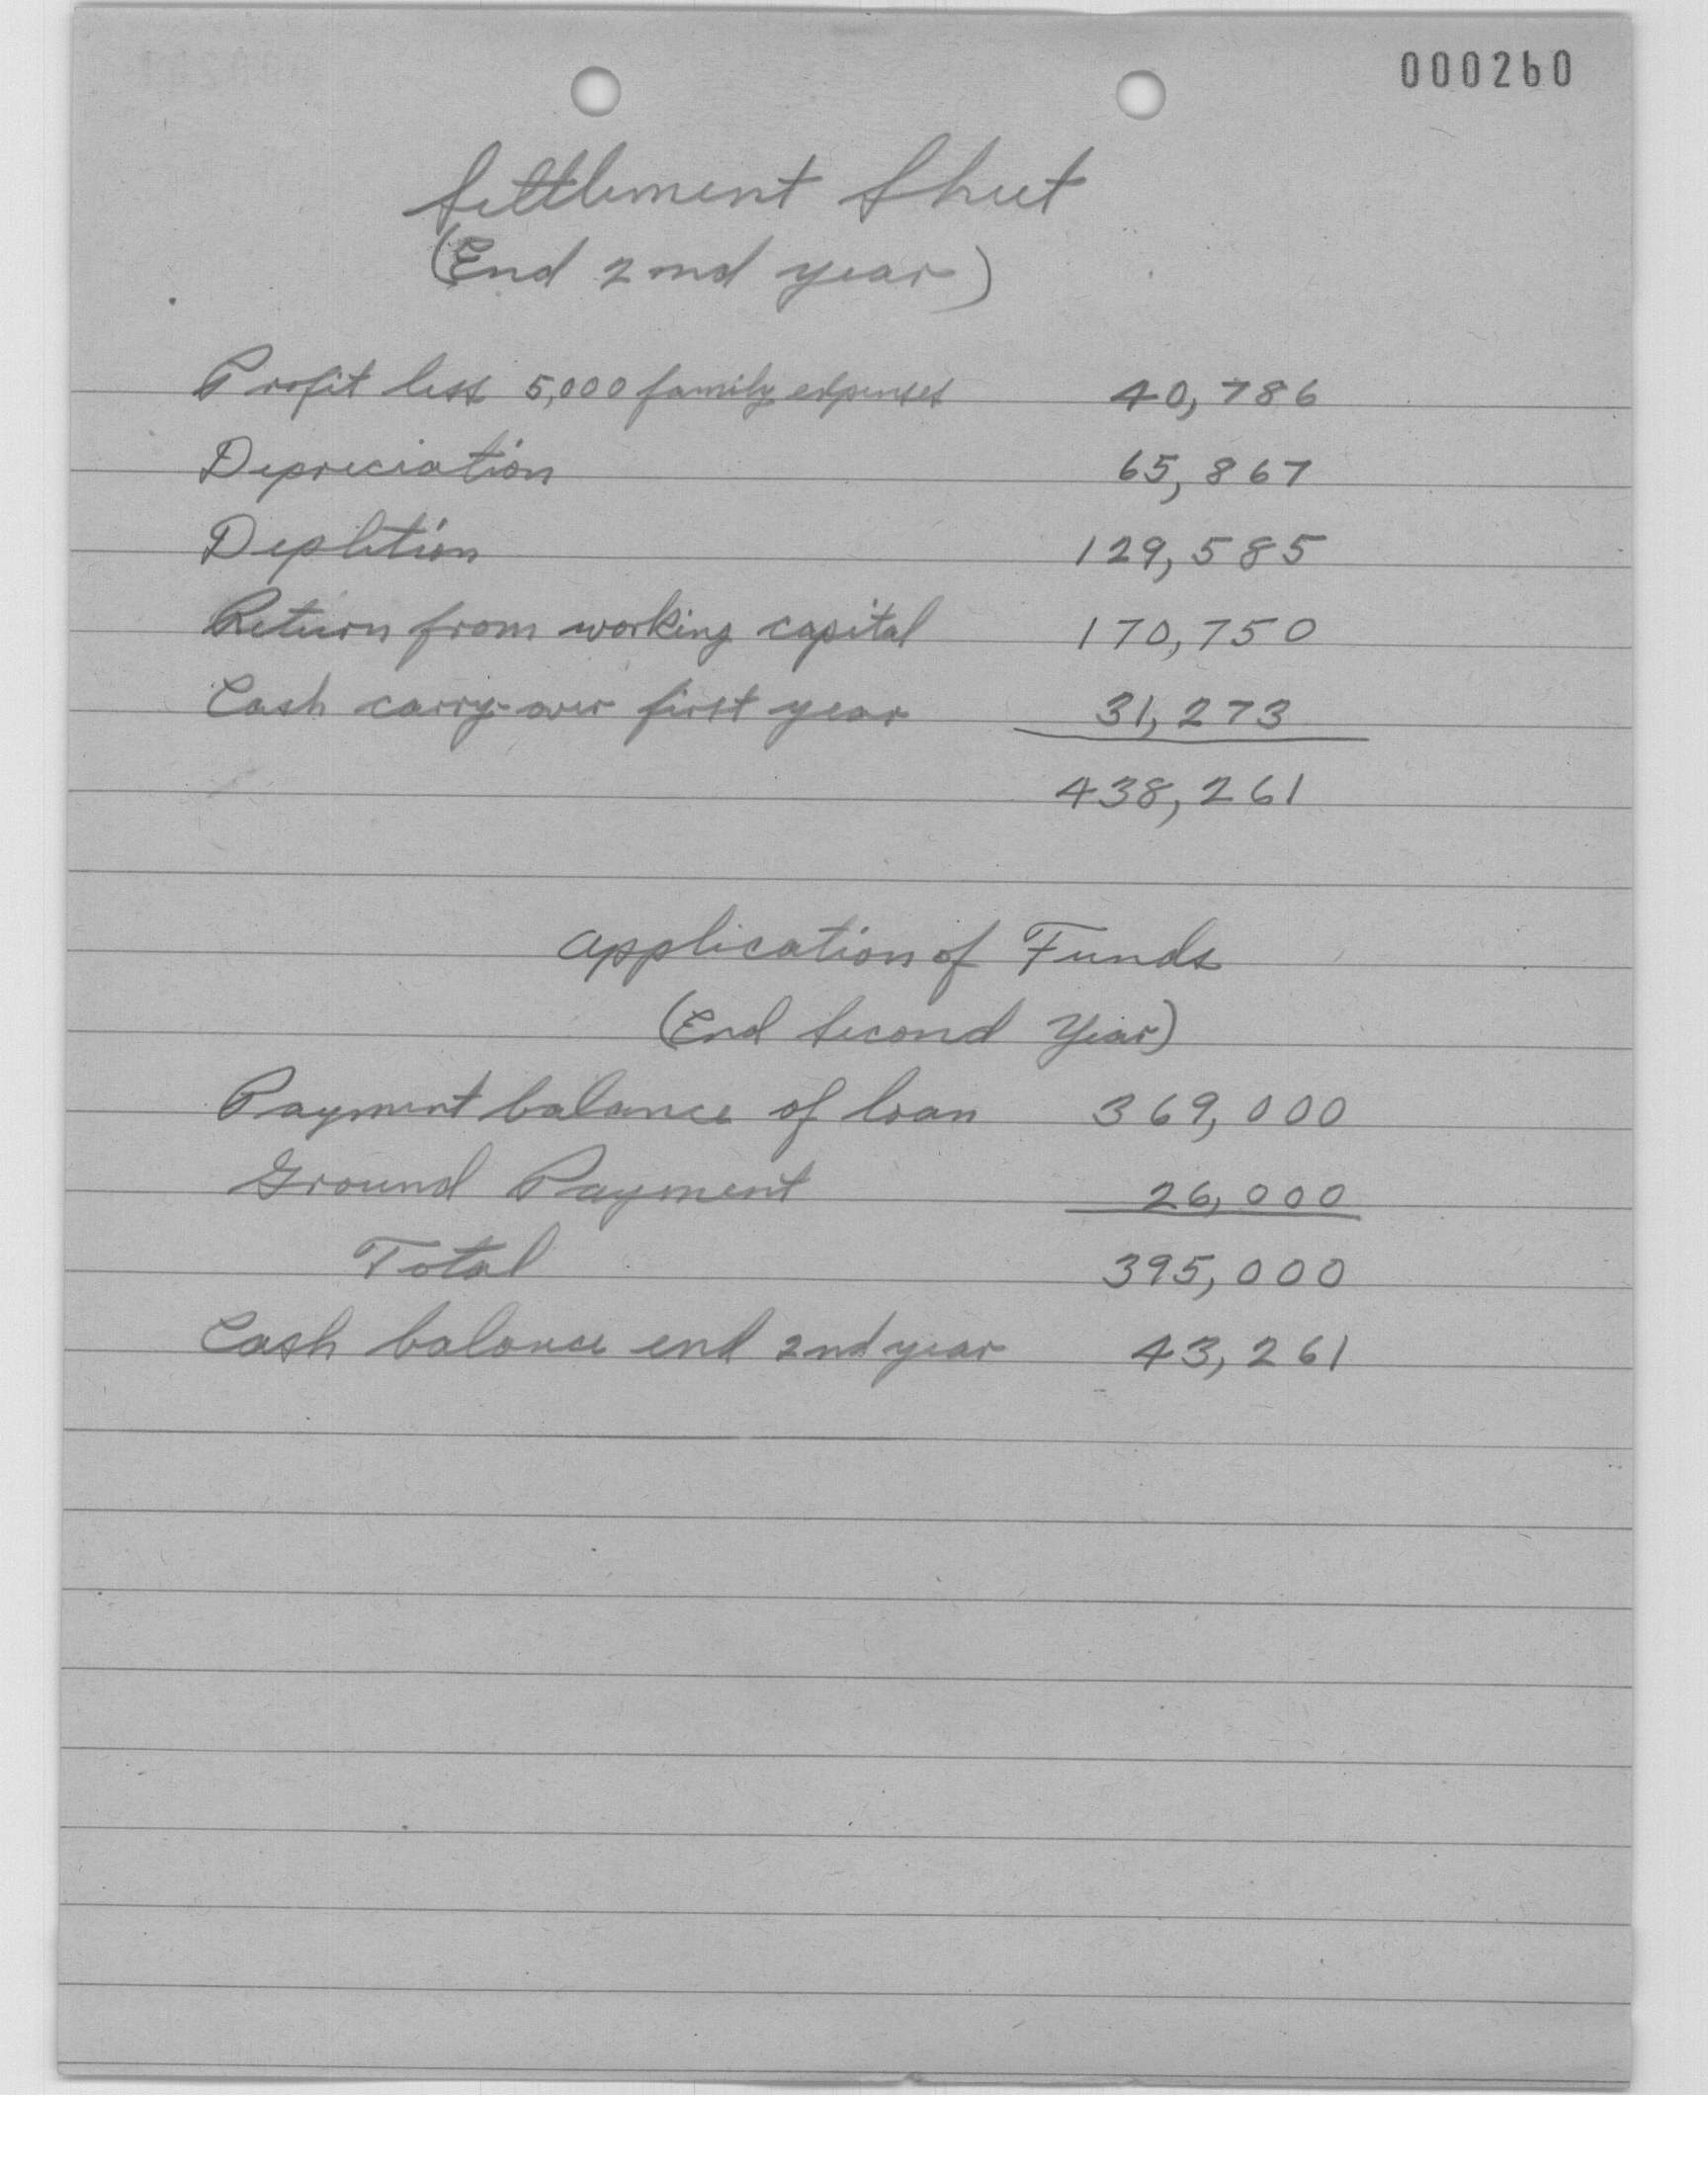 000260
Settlement Sheet
(End 2nd year)
Profit less 5,000 family expenses 40,786
Depreciation 65,867
Depletion 129,585
Return from working capital 170,750
Cash carry-over first year 31,273
438,261
Application of Funds
(End Second Year)
Payment balance of loan 369,000
Ground Payment 26,000
Total 395,000
Cash balance end 2nd year 43,261